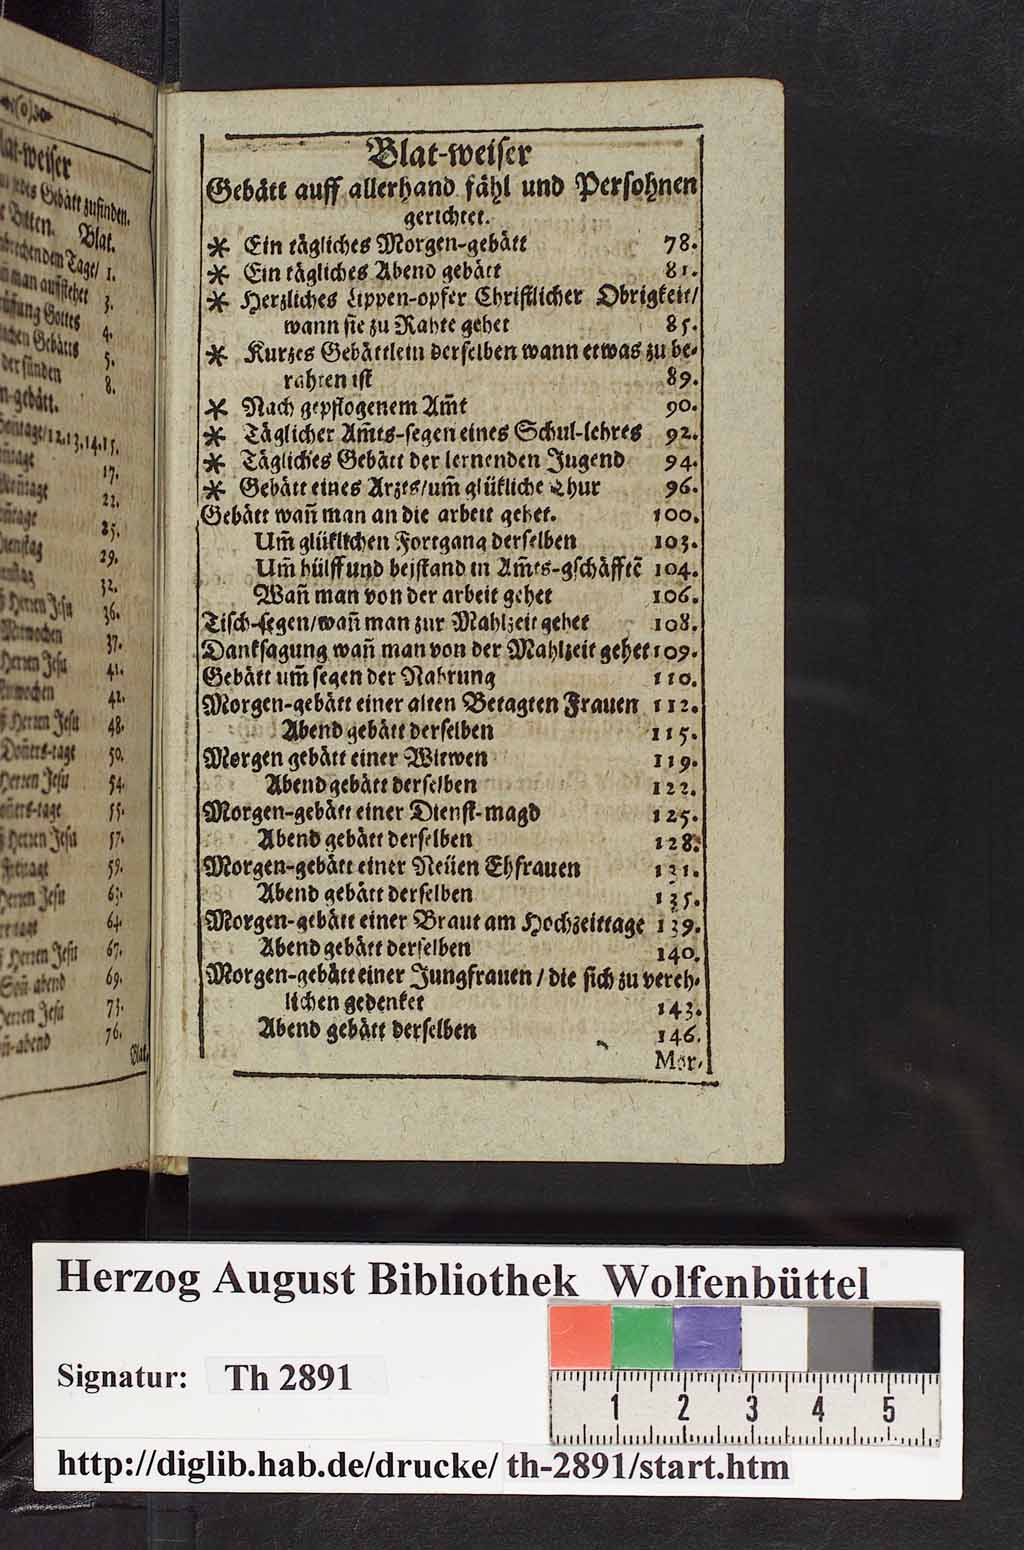 Blat.
1.
3.
4.
5.
8.
12.13.14.15.
17.
22.
25.
29.
32.
36.
37.
41.
42.
48.
50.
54.
55.
57.
59.
63.
64.
67.
69.
73.
76.
Blat-weiser
Gebätt auff allerhand fähl und Persohnen
gerichtet.
* Ein tägliches Morgen-gebätt 78.
* Ein tägliches Abend gebätt 81.
* Herzliches Lippen-opfer Christlicher Obrigkeit/
wann sie zu Rahte gehet 85.
* Kurzes Gebättlein derselben wann etwas zu be-
rahten ist 89.
* Nach gepflogenem Am̃t 90.
* Täglicher Am̃ts-segen eines Schul-lehres 92.
* Tägliches Gebätt der lernenden Jugend 94.
* Gebätt eines Arzts/um̃ glükliche Chur 96.
Gebätt wañ man an die arbeit gehet. 100.
Um̃ glüklichen Fortgang derselben 103.
Um̃ hülff und beistand in Am̃ts-gschäfftẽ 104.
Wañ man von der arbeit gehet 106.
Tisch-segen/wañ man zur Mahlzeit gehet 108.
Danksagung wañ man von der Mahlzeit gehet 109.
Gebätt um̃ segen der Nahrung 110.
Morgen-gebätt einer alten Betagten Frauen 112.
Abend gebätt derselben 115.
Morgen gebätt einer Witwen 119.
Abend gebätt derselben 122.
Morgen-gebätt einer Dienst-magd 125.
Abend gebätt derselben 128.
Morgen-gebätt einer Neüen Ehfrauen 131.
Abend gebätt derselben 135.
Morgen-gebätt einer Braut am Hochzeittage 139.
Abend gebätt derselben 140.
Morgen-gebätt einer Jungfrauen / die sich zu vereh-
lichen gedenket 143.
Abend gebätt derselben 146.
Mor-
Herzog August Bibliothek Wolfenbüttel
Signatur: Th 2891
1 2 3 4 5
http://diglib.hab.de/drucke/ th-2891/start.htm